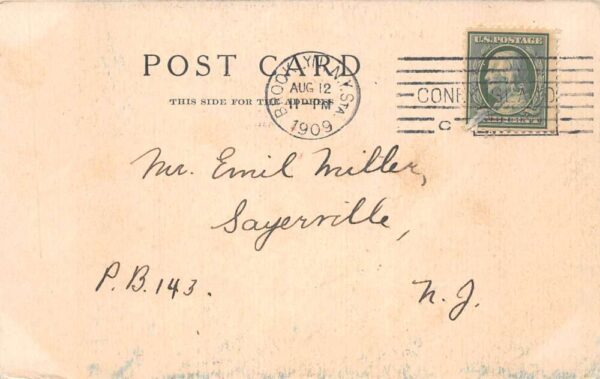 POST CARD
THIS SIDE FOR THE ADDRESS
BROOKLYN, N.Y. STA.
AUG 12
11-PM
1909
U.S. POSTAGE
CONEY ISLAND
C
Mr. Emil Miller,
Sayerville,
P.B. 143.
N.J.